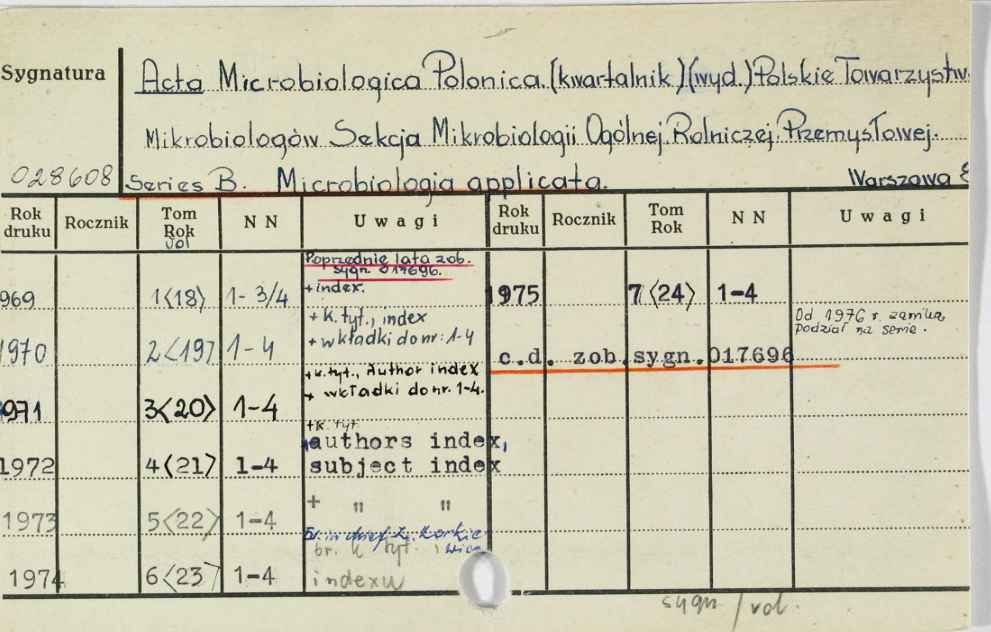 Sygnatura
Acta Microbiologica Polonica. (kwartalnik) (wyd.) Polskie Towarzystw
Mikrobiologów Sekcja Mikrobiologii Ogólnej. Rolniczej. Przemysłowej.
028608 Series B. Microbiologia applicata. Warszawa
Rok druku Rocznik Tom Rok vol N N Uwagi Rok druku Rocznik Tom Rok N N Uwagi
Poprzednie lata zob.
sygn 017696.
969 1(18) 1-3/4 + index. 1975 7(24) 1-4
Od 1976 r. zanika
podział na serie.
+ k. tyt., index
1970 2<19) 1-4 + wkładki do nr: 1-4
c.d. zob. sygn. 017696
+ k. tyt., Author index
1971 3<20> 1-4 + wkładki do nr. 1-4.
+ k. tyt
authors index,
1972 4(21) 1-4 subject index
1973 5<22> 1-4 + " "
br. k tyt. i
1974 6(23) 1-4 indexu
sygn / vol.